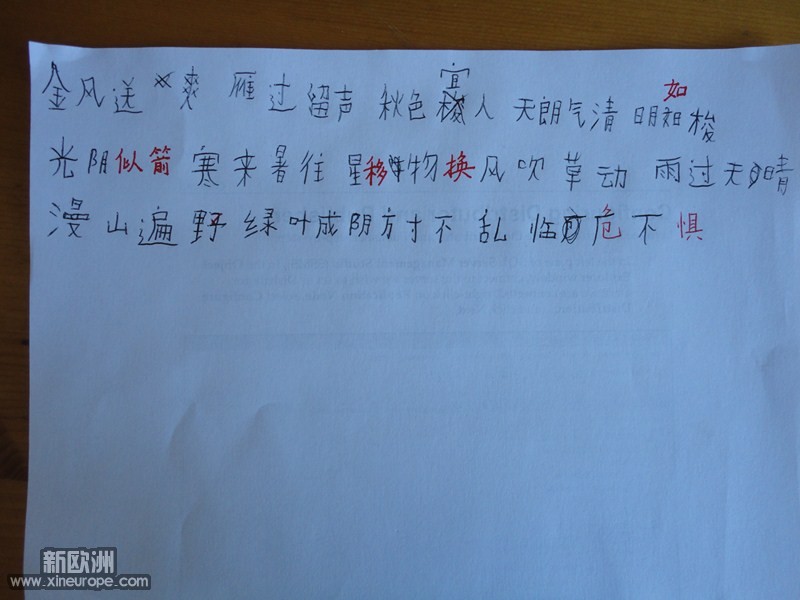 金风送爽 雁过留声 秋色宜人 天朗气清 日月如梭
光阴似箭 寒来暑往 星移物换 风吹草动 雨过天晴
漫山遍野 绿叶成阴 方寸不乱 临危不惧
新欧洲
www.xineurope.com